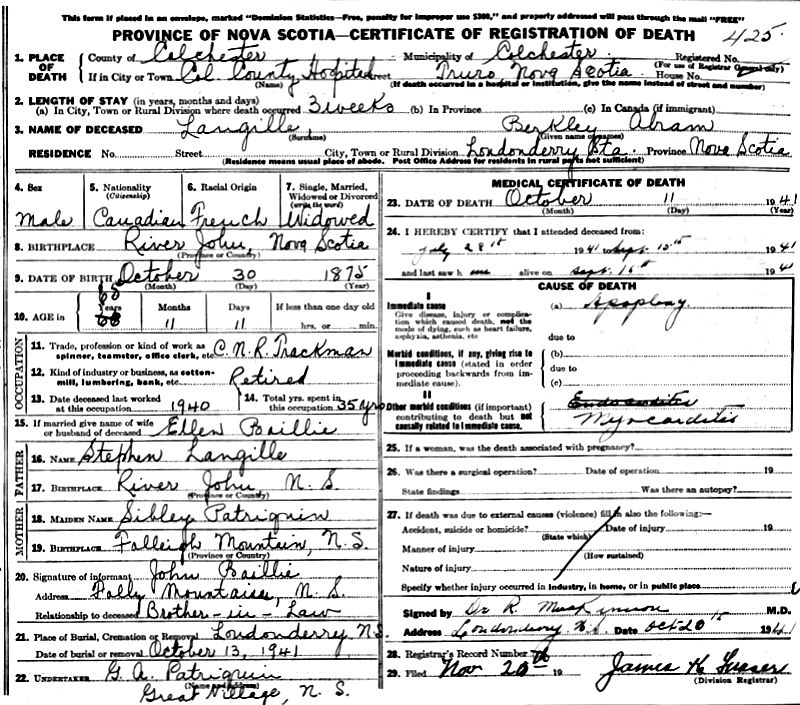 This form if placed in an envelope, marked "Dominion Statistics—Free, penalty for improper use $300," and properly addressed will pass through the mail "FREE"
PROVINCE OF NOVA SCOTIA—CERTIFICATE OF REGISTRATION OF DEATH 425
1. PLACE OF DEATH County of Colchester Municipality of Colchester Registered No.
(For use of Registrar General only)
If in City or Town Col County Hospital Street Truro Nova Scotia House No.
(Name) (If death occurred in a hospital or institution, give the name instead of street and number)
2. LENGTH OF STAY (in years, months and days)
(a) In City, Town or Rural Division where death occurred 3 weeks (b) In Province (c) In Canada (if immigrant)
3. NAME OF DECEASED Langille, Berkley Abram
(Surname) (Given name or names)
RESIDENCE No. Street City, Town or Rural Division Londonderry Sta. Province Nova Scotia
(Residence means usual place of abode. Post Office Address for residents in rural parts not sufficient)
4. Sex Male
5. Nationality (Citizenship) Canadian
6. Racial Origin French
7. Single, Married, Widowed or Divorced (write the word) Widowed
8. BIRTHPLACE River John, Nova Scotia
(Province or Country)
9. DATE OF BIRTH October 30 1875
(Month) (Day) (Year)
10. AGE in Years 65 Months 11 Days 11 If less than one day old hrs. or min.
OCCUPATION
11. Trade, profession or kind of work as spinner, teamster, office clerk, etc. C.N.R. Trackman
12. Kind of industry or business, as cotton-mill, lumbering, bank, etc. Retired
13. Date deceased last worked at this occupation 1940
14. Total yrs. spent in this occupation 35 yrs
15. If married give name of wife or husband of deceased Ellen Baillie
FATHER
16. NAME Stephen Langille
17. BIRTHPLACE River John, N.S.
(Province or Country)
MOTHER
18. MAIDEN NAME Sibley Patriquin
19. BIRTHPLACE Falleigh Mountain, N.S.
(Province or Country)
20. Signature of informant John Baillie
Address Folly Mountain, N.S.
Relationship to deceased Brother-in-Law
21. Place of Burial, Cremation or Removal Londonderry N.S.
Date of burial or removal October 13, 1941
22. UNDERTAKER G. A. Patriquin
(Name and Address)
Great Village, N.S.
MEDICAL CERTIFICATE OF DEATH
23. DATE OF DEATH October 11 1941
(Month) (Day) (Year)
24. I HEREBY CERTIFY that I attended deceased from:
July 28th 1941 to Sept. 15th 1941
and last saw h im alive on Sept. 15th 1941
CAUSE OF DEATH
I
Immediate cause (a) Apoplexy.
Give disease, injury or complication which caused death, not the mode of dying, such as heart failure, asphyxia, asthenia, etc.
due to
Morbid conditions, if any, giving rise to immediate cause (stated in order proceeding backwards from immediate cause).
(b)
due to
(c)
II
Other morbid conditions (if important) contributing to death but not causally related to immediate cause.
Endocarditis
Myocarditis
25. If a woman, was the death associated with pregnancy?
26. Was there a surgical operation? Date of operation 19
State findings Was there an autopsy?
27. If death was due to external causes (violence) fill in also the following:—
Accident, suicide or homicide? Date of injury 19
(State which)
Manner of injury
(How sustained)
Nature of injury
Specify whether injury occurred in industry, in home, or in public place
Signed by Dr R. MacKinnon M.D.
Address Londonderry N.S. Date Oct 20th 1941
28. Registrar's Record Number
29. Filed Nov 20th 19 James K.
(Division Registrar)